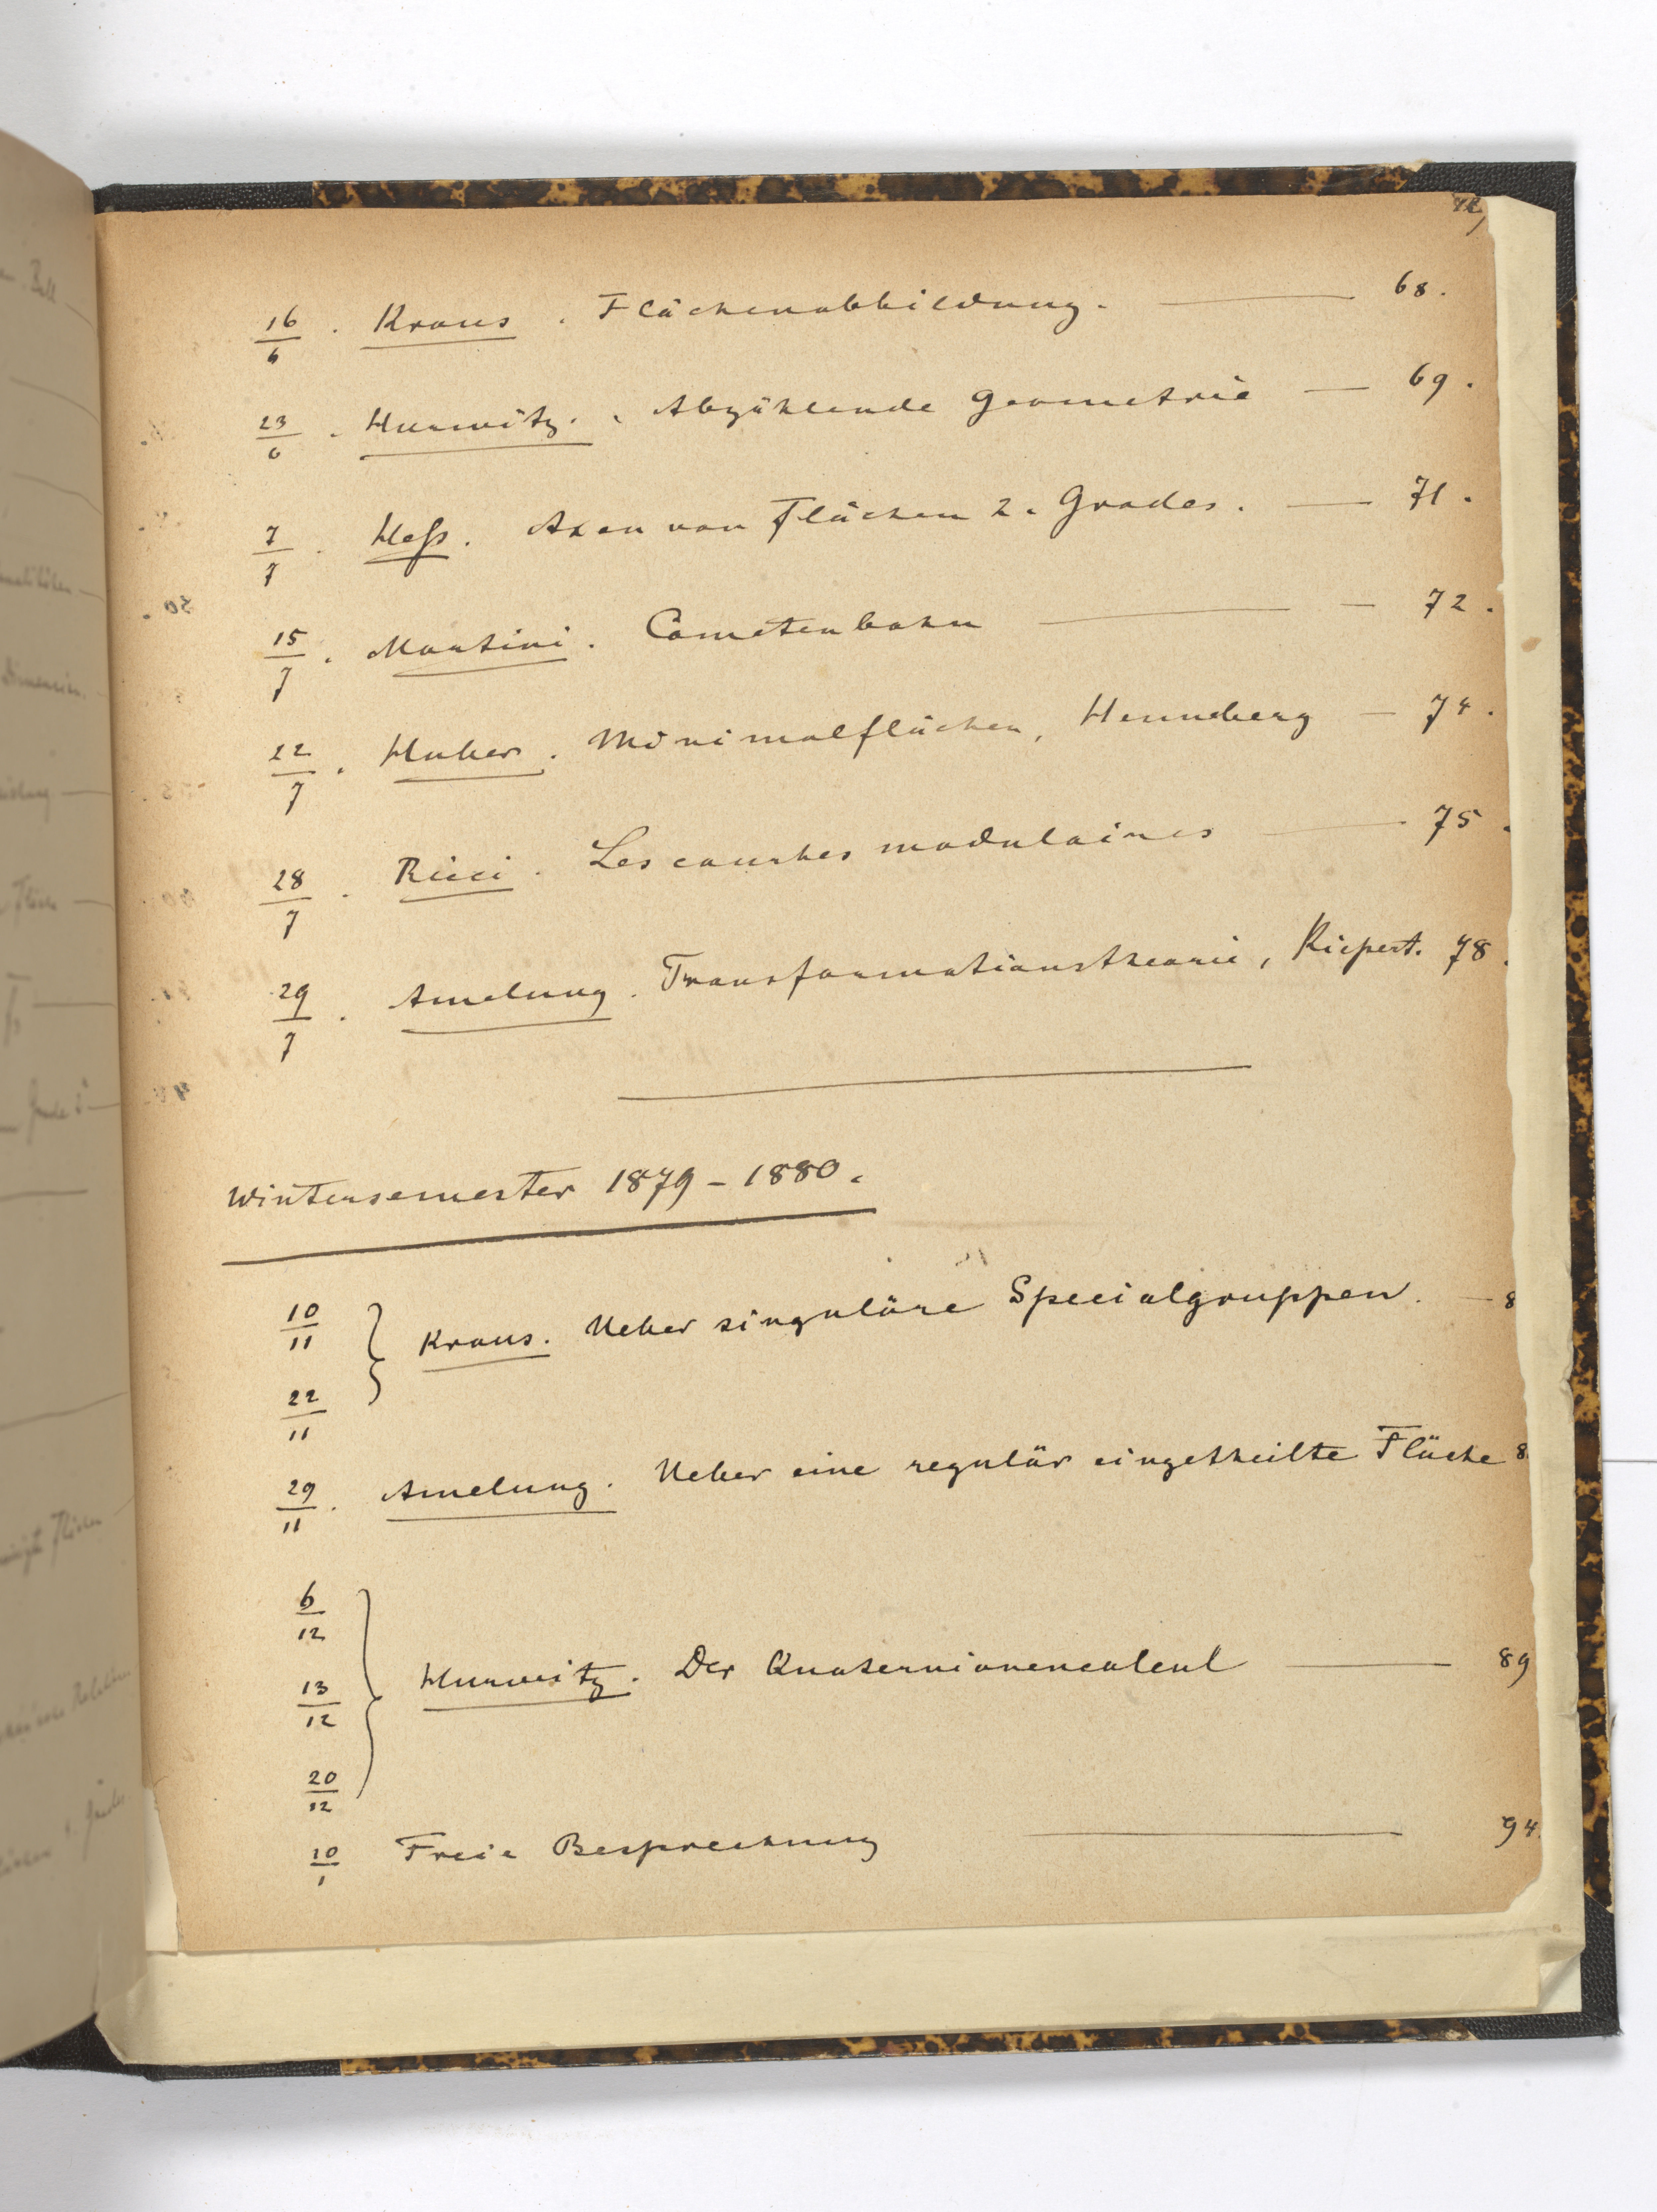 16/6 . Kraus . Flächenabbildung. — 68.
23/6 . Hurwitz. . Abzählende Geometrie — 69.
7/7 . Heß. Axen von Flächen 2. Grades. — 71.
15/7 . Martini. Cometenbahn — 72.
22/7 . Huber. Minimalflächen, Henneberg — 74.
28/7 . Ricci. Les courbes modulaires — 75.
29/7 . Amelung. Transformationstheorie, Kiepert. 78.
Wintersemester 1879-1880.
10/11
22/11
Kraus. Ueber singuläre Specialgruppen. — 8
29/11 . Amelung. Ueber eine regulär eingetheilte Fläche 8
6/12
13/12
20/12
Hurwitz. Der Quaternionencalcul — 89
10/1 Freie Besprechung — 94.